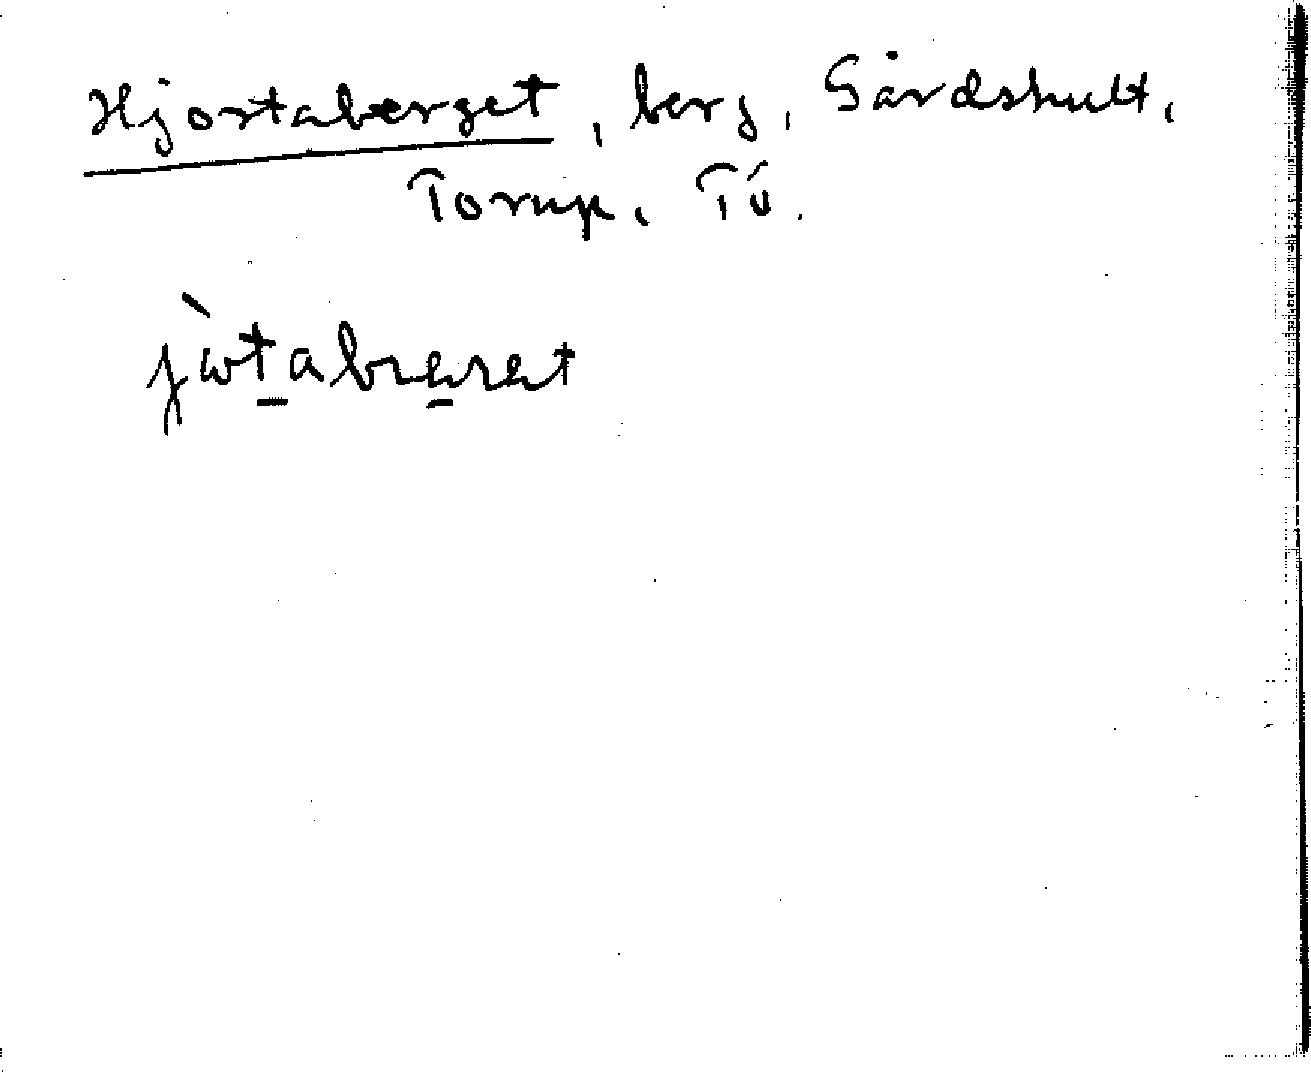 Hjortaberget, berg, Gårdshult,
Torup. Tö.